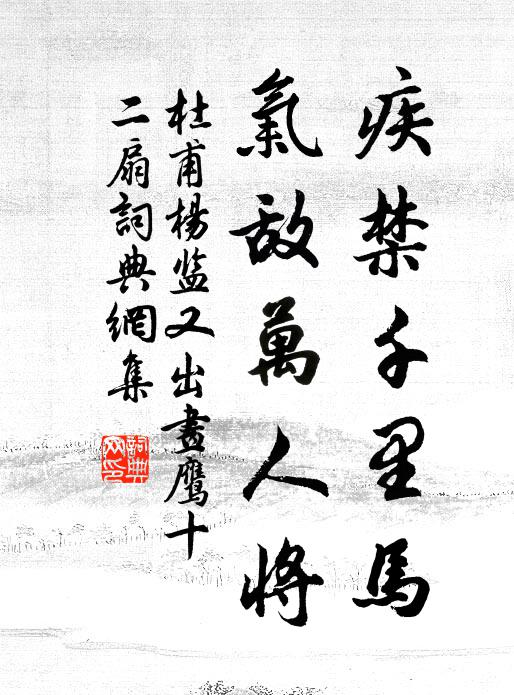 疾禁千里馬
氣敵萬人將
杜甫楊監又出畫鷹十
二扇詞典網集
詞典
网印